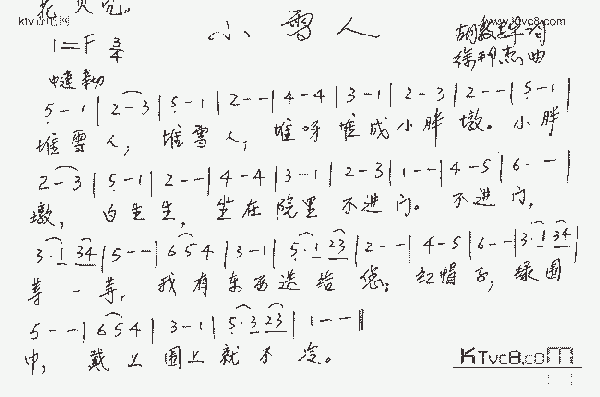 小雪人
www.ktvc8.com
1=F 3/4
中速
徐 杰曲
5 - 1 | 2 - 3 | 5 - 1 | 2 - - | 4 - 4 | 3 - 1 | 2 - 3 | 2 - - | 5 - 1 |
堆雪人，堆雪人，堆呀堆成小胖墩。小胖
2 - 3 | 5 - 1 | 2 - - | 4 - 4 | 3 - 1 | 2 - 3 | 1 - - | 4 - 5 | 6 - - |
墩，白生生，坐在院里不进门。不进门，
3·1 34 | 5 - - | 6 5 4 | 3 - 1 | 5·1 23 | 2 - - | 4 - 5 | 6 - - | 3·1 34 |
等一等，我有东西送给您；红帽子，绿围
5 - - | 6 5 4 | 3 - 1 | 5·3 23 | 1 - - ‖
巾，戴上围上就不冷。
KTvc8.com